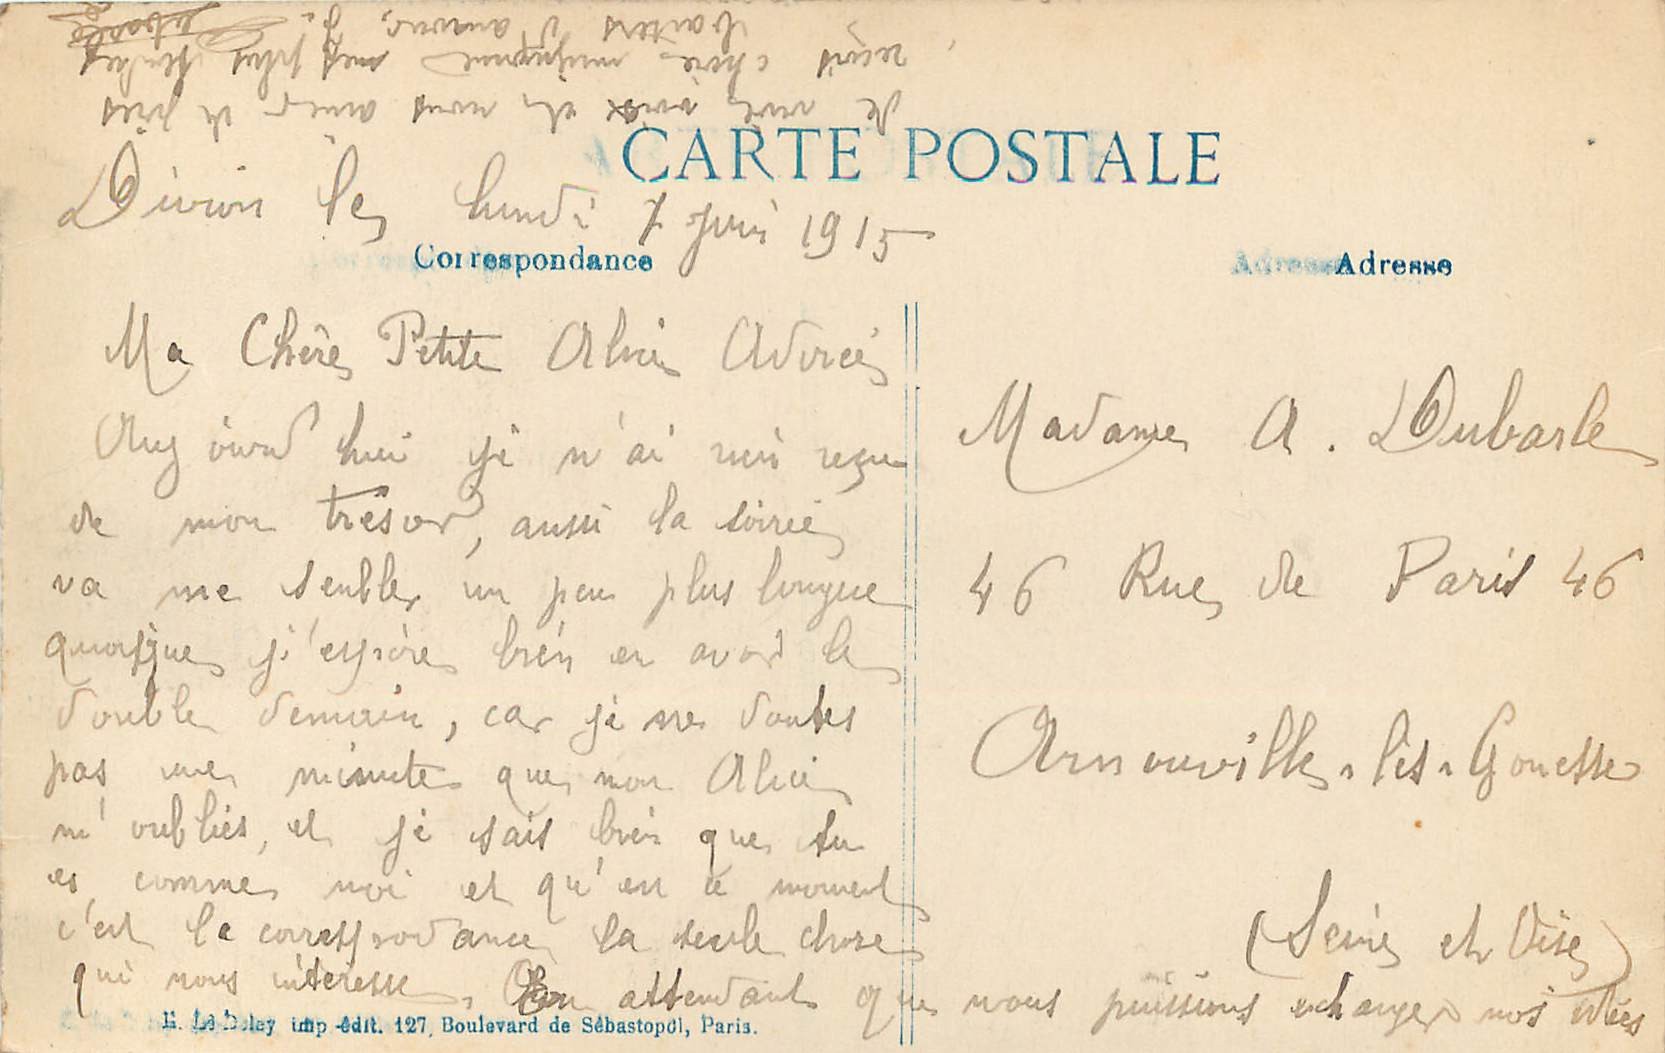 CARTE POSTALE
Divion le lundi 7 juin 1915
Correspondance
Adresse
Ma Chère Petite Alice Adorée
Auj ourd hui je n'ai rien reçu
de mon trésor, aussi la soirée
va me sembler un peu plus longue
quoique j'espère bien en avoir le
double demain, car je ne doutes
pas une minute que mon Alice
m'oublies, et je sais bien que tu
es comme moi et qu'en ce moment
c'est la correspondance la seule chose
qui nous intéresse. En attendant que nous puissions echanger nos idées
de vive voix et nous aimer de près
reçois chère mignonne mes plus tendres
baisers d'amour,
Madame A. Dubarle
46 Rue de Paris 46
Arnouville-lès-Gonesse
(Seine et Oise)
E. Le Deley imp-édit. 127, Boulevard de Sébastopol, Paris.